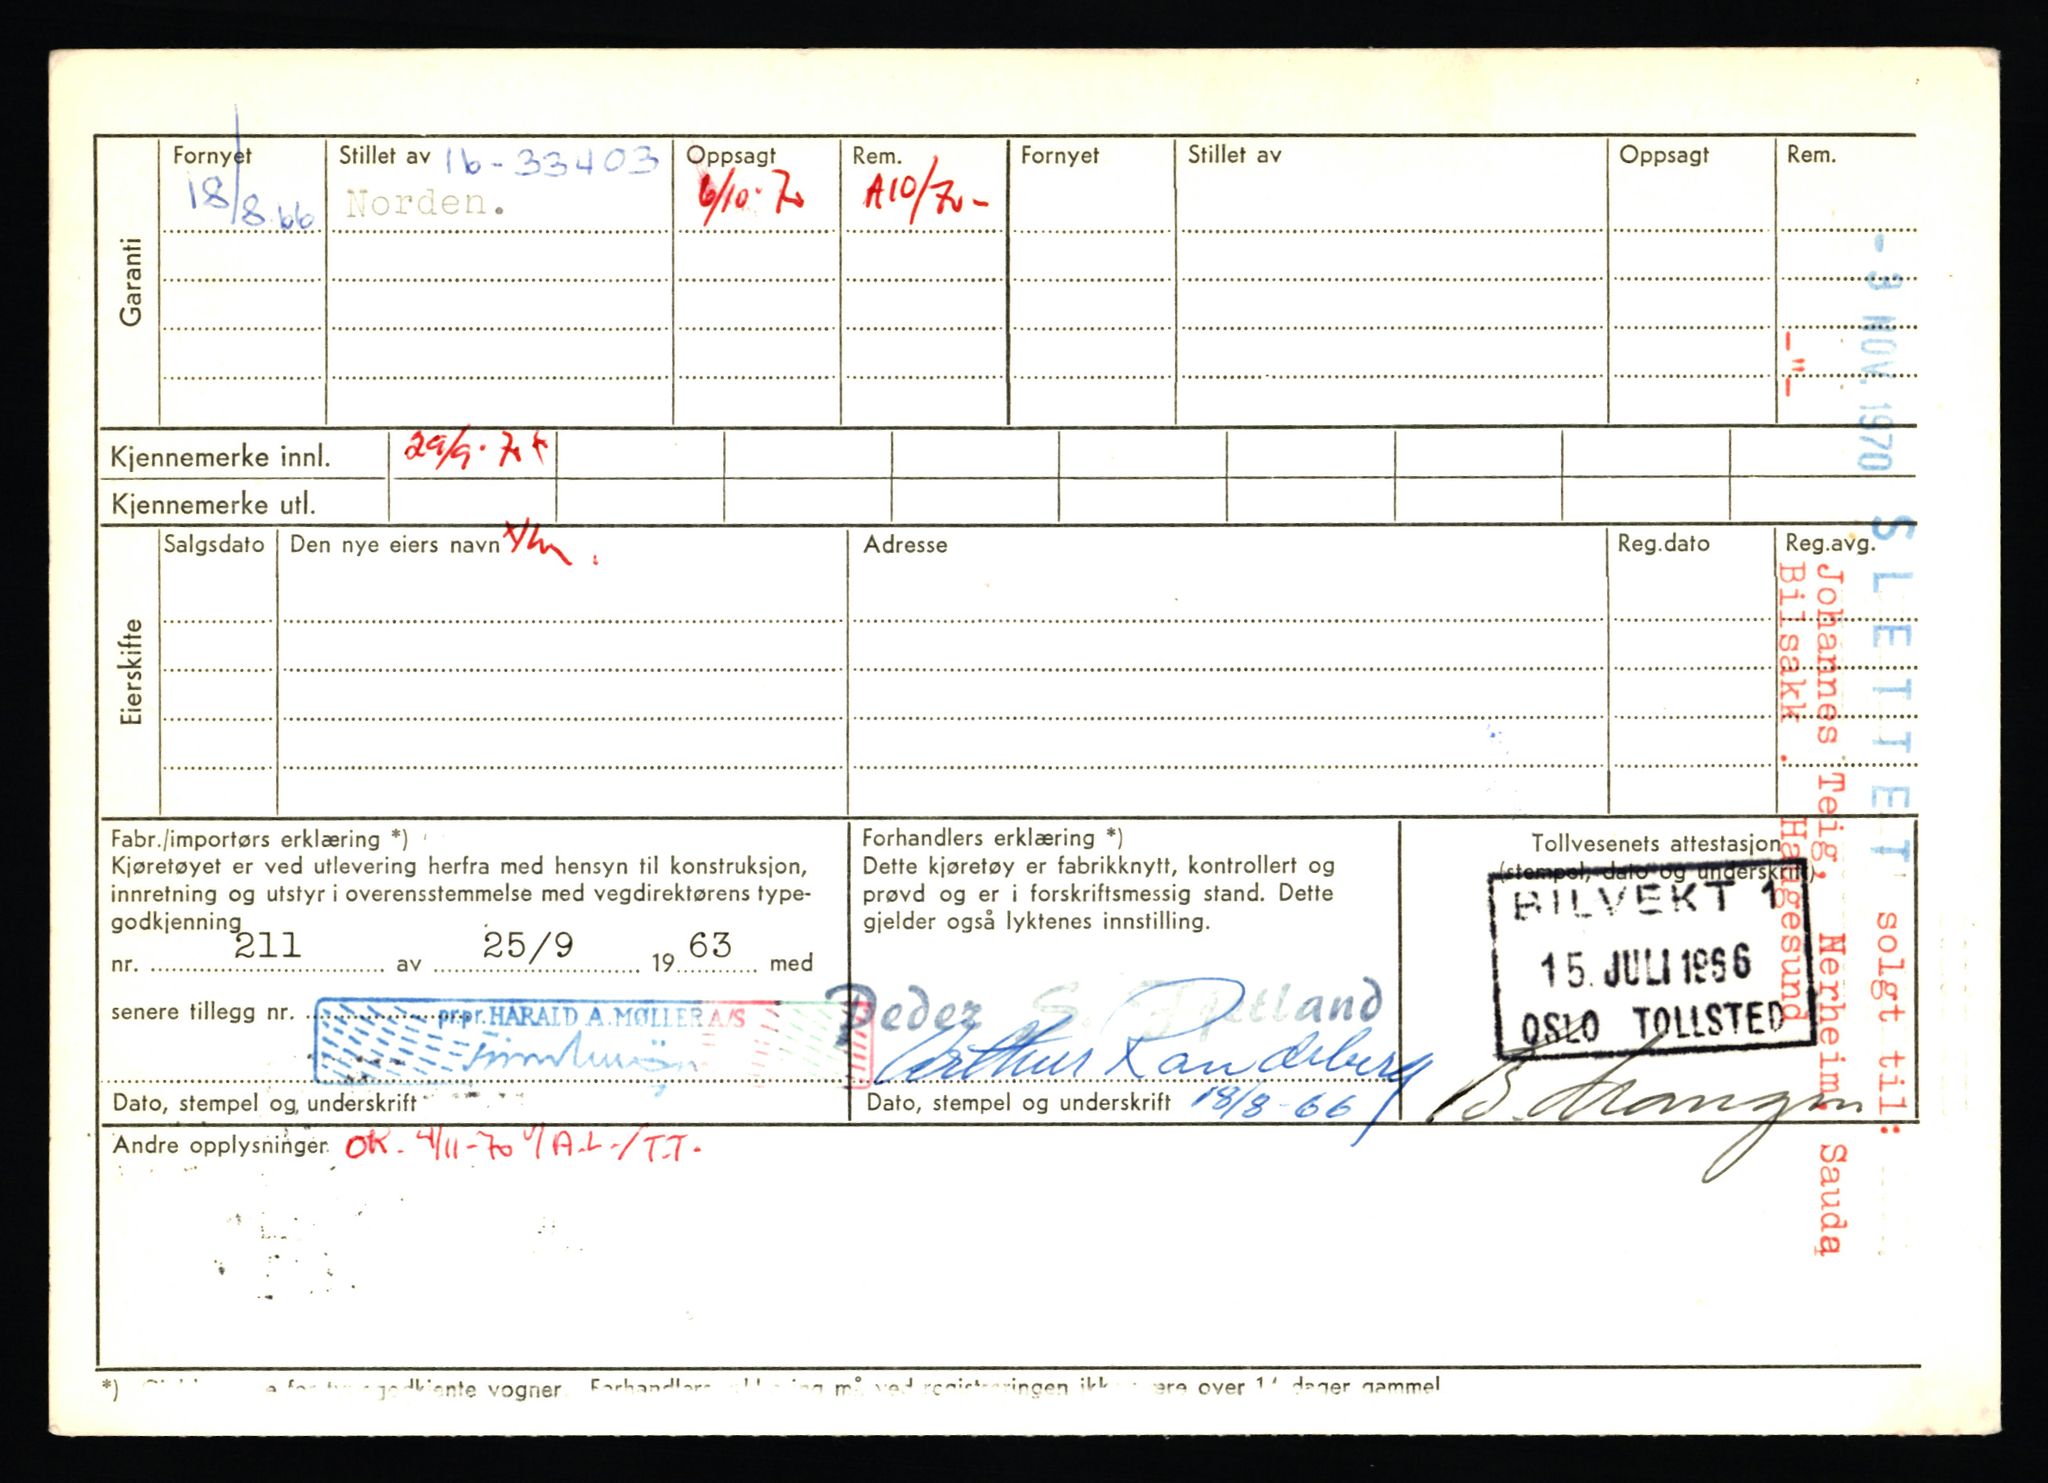 Garanti
Fornyet
Stillet av
16-33403
Oppsagt
Rem.
Fornyet
Stillet av
Oppsagt
Rem.
18/8 66
Norden.
6/10-70
A10/70-
Kjennemerke innl.
29/9-70
Kjennemerke utl.
Eierskifte
Salgsdato
Den nye eiers navn
Adresse
Reg.dato
Reg.avg.
Fabr./importørs erklæring *)
Kjøretøyet er ved utlevering herfra med hensyn til konstruksjon,
innretning og utstyr i overensstemmelse med vegdirektørens type-
godkjenning
nr. 211 av 25/9 1963 med
senere tillegg nr.
pr.pr. HARALD A. MØLLER A/S
Dato, stempel og underskrift
Forhandlers erklæring *)
Dette kjøretøy er fabrikknytt, kontrollert og
prøvd og er i forskriftsmessig stand. Dette
gjelder også lyktenes innstilling.
Peder S. Fjetland
Arthur Randeberg
Dato, stempel og underskrift 18/8-66
Tollvesenets attestasjon
(stempel, dato og underskrift)
BILVEKT 1
15. JULI 1966
OSLO TOLLSTED
Andre opplysninger
OK. 4/11-70 V/A.L-/T.T.
- 3 NOV. 1970 SLETTET solgt til:
Johannes Teig, Nerheim, Sauda
-"- Bilsakk . Haugesund
over 14 dager gammel